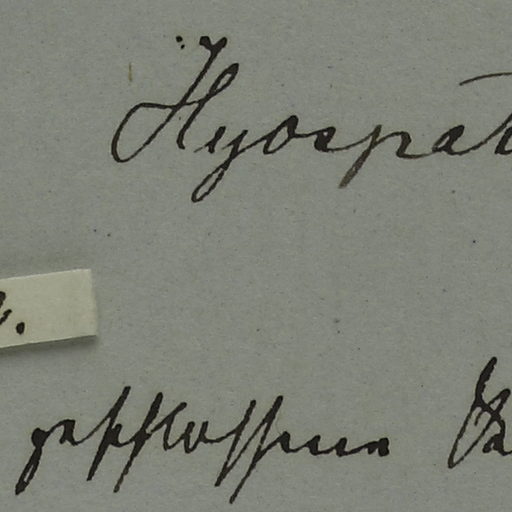 Hyospat
geschlossene